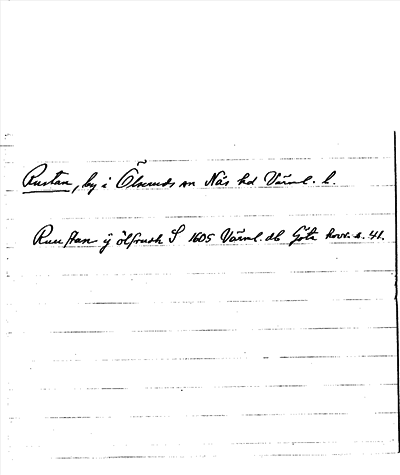 Rustan, by i Ölseruds sn Näs hd Värml. l.
Ruustan ÿ ölssrudh S 1605 Värml. db Göta hovr. s. 41.